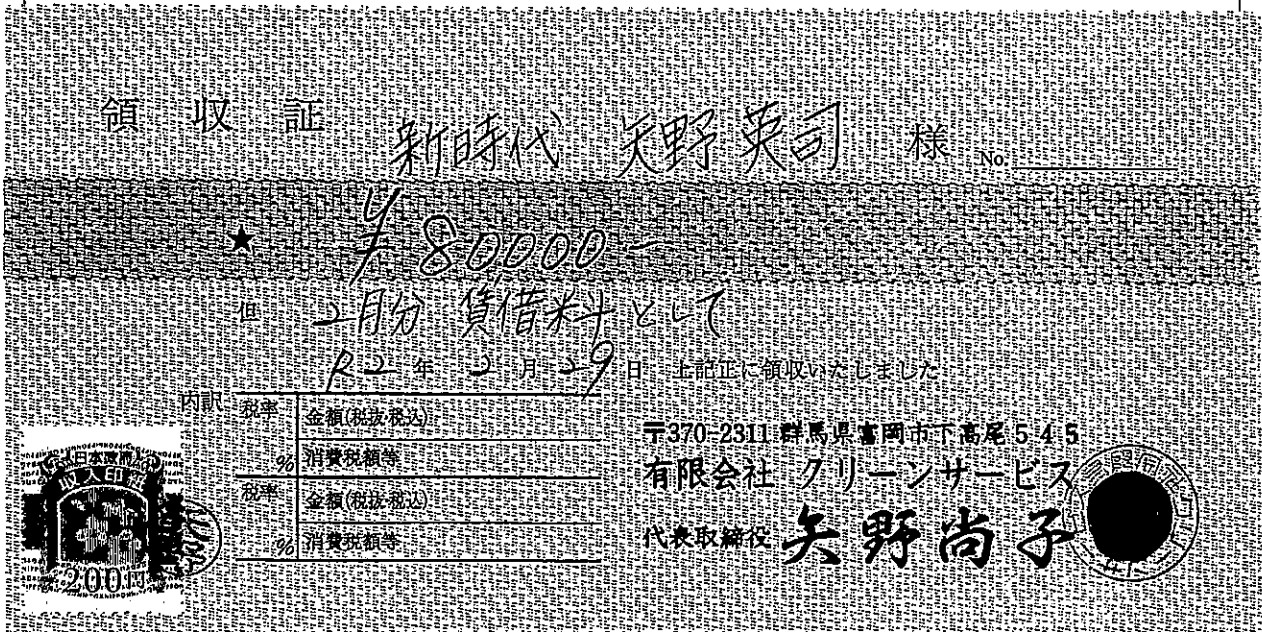 領収証 新時代 矢野英司 様 No.
★ ¥80,000-
但 2月分 賃借料として
R2年 2月 29日 上記正に領収いたしました
内訳
税率 金額(税抜・税込)
% 消費税額等
税率 金額(税抜・税込)
% 消費税額等
〒370-2311 群馬県富岡市下高尾545
有限会社 クリーンサービス
代表取締役 矢野尚子
日本政府
収入印紙
200円